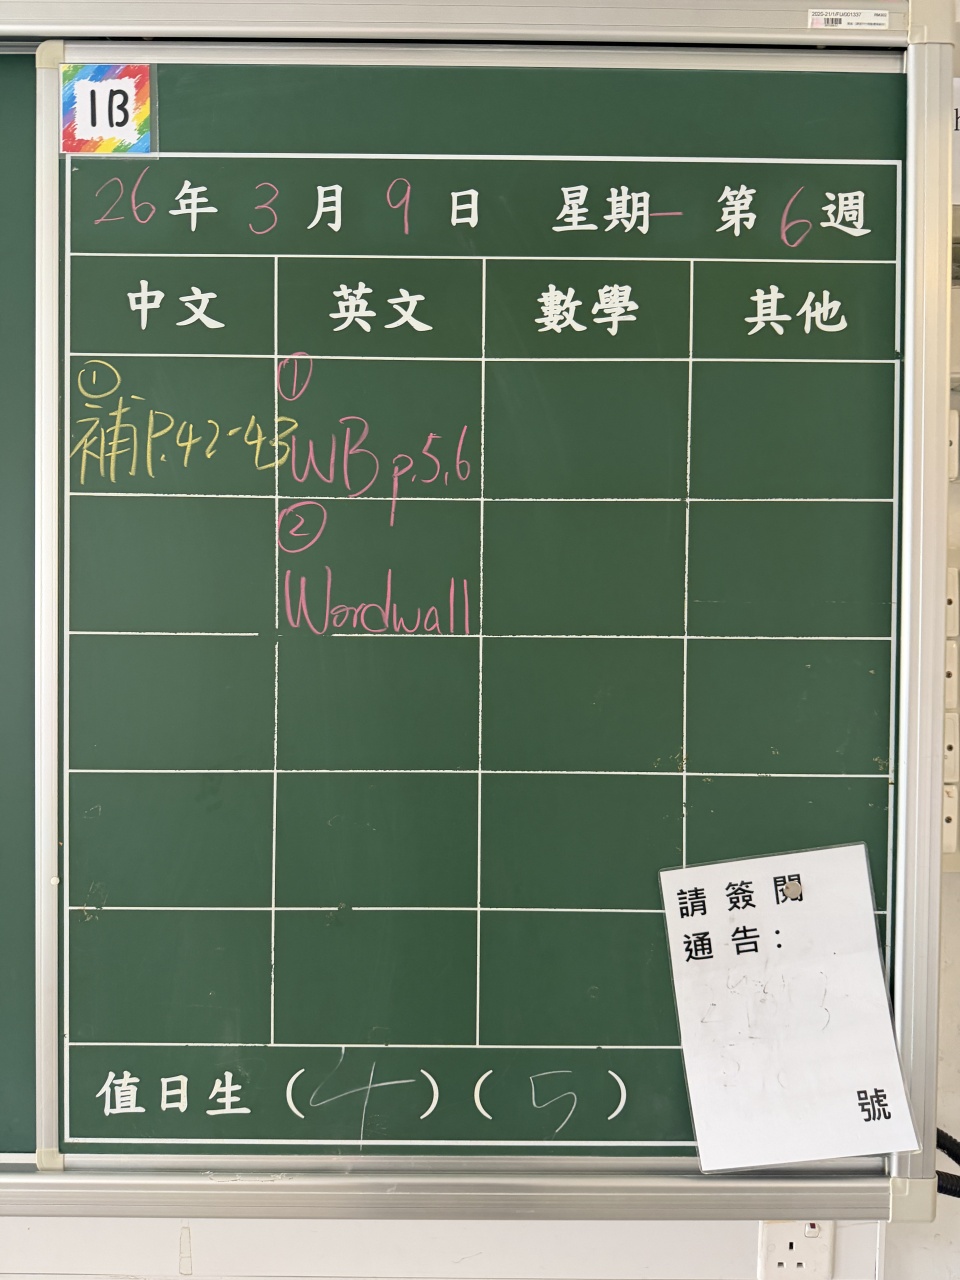 2020-21/1/FU/001337
1B
26年 3月 9日 星期一 第6週
中文 英文 數學 其他
①
補P.42-43
①
WB p.5,6
②
Wordwall
請簽閱
通告：
號
值日生（4）（5）